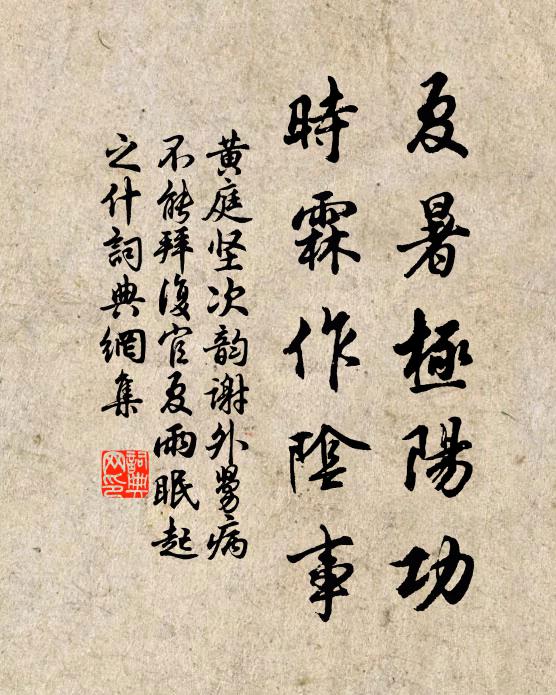 夏暑極陽功
時霖作陰事
黄庭坚次韵谢外舅病
不能拜復官夏雨眠起
之什詞典網集
詞典
网印